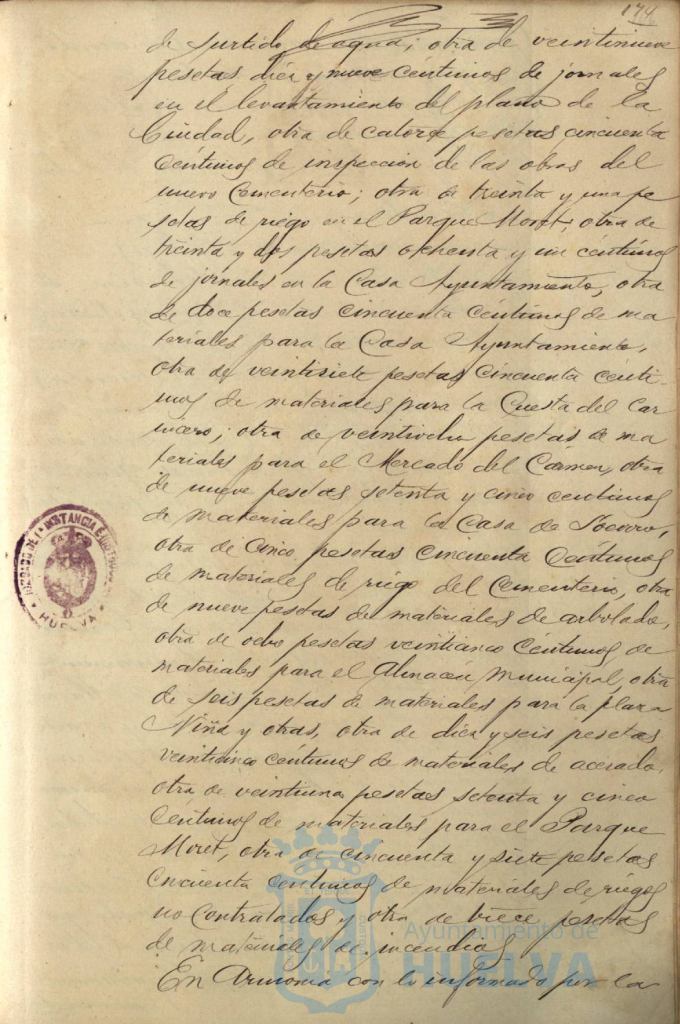 174
de surtido de agua; otra de veintinueve
pesetas diez y nueve céntimos de jornales
en el levantamiento del plano de la
Ciudad, otra de catorce pesetas cincuenta
céntimos de inspección de las obras del
nuevo Cementerio; otra de treinta y una pe
setas de riego en el Parque Moret, otra de
treinta y dos pesetas ochenta y un céntimos
de jornales en la Casa Ayuntamiento, otra
de doce pesetas cincuenta céntimos de ma
teriales para la Casa Ayuntamiento,
otra de veintisiete pesetas cincuenta cénti-
mos de materiales para la Cuesta del Car
nicero; otra de veintiocho pesetas de ma
teriales para el Mercado del Cármen, otra
de nueve pesetas setenta y cinco centimos
de materiales para la Casa de Socorro,
otra de cinco pesetas cincuenta céntimos
de materiales de riego del Cementerio, otra
de nueve pesetas de materiales de arbolado,
otra de ocho pesetas veinticinco céntimos de
materiales para el Almacén municipal, otra
de seis pesetas de materiales para la plaza
Niña y otras, otra de diez y seis pesetas
veinticinco céntimos de materiales de acerado,
otra de veintiuna pesetas setenta y cinco
céntimos de materiales para el Parque
Moret, otra de cincuenta y siete pesetas
cincuenta centimos de materiales de riegos
no contratados y otra de trece pesetas
de materiales de incendios
En armonia con lo informado por la
HUELVA
Ayuntamiento de
HUELVA